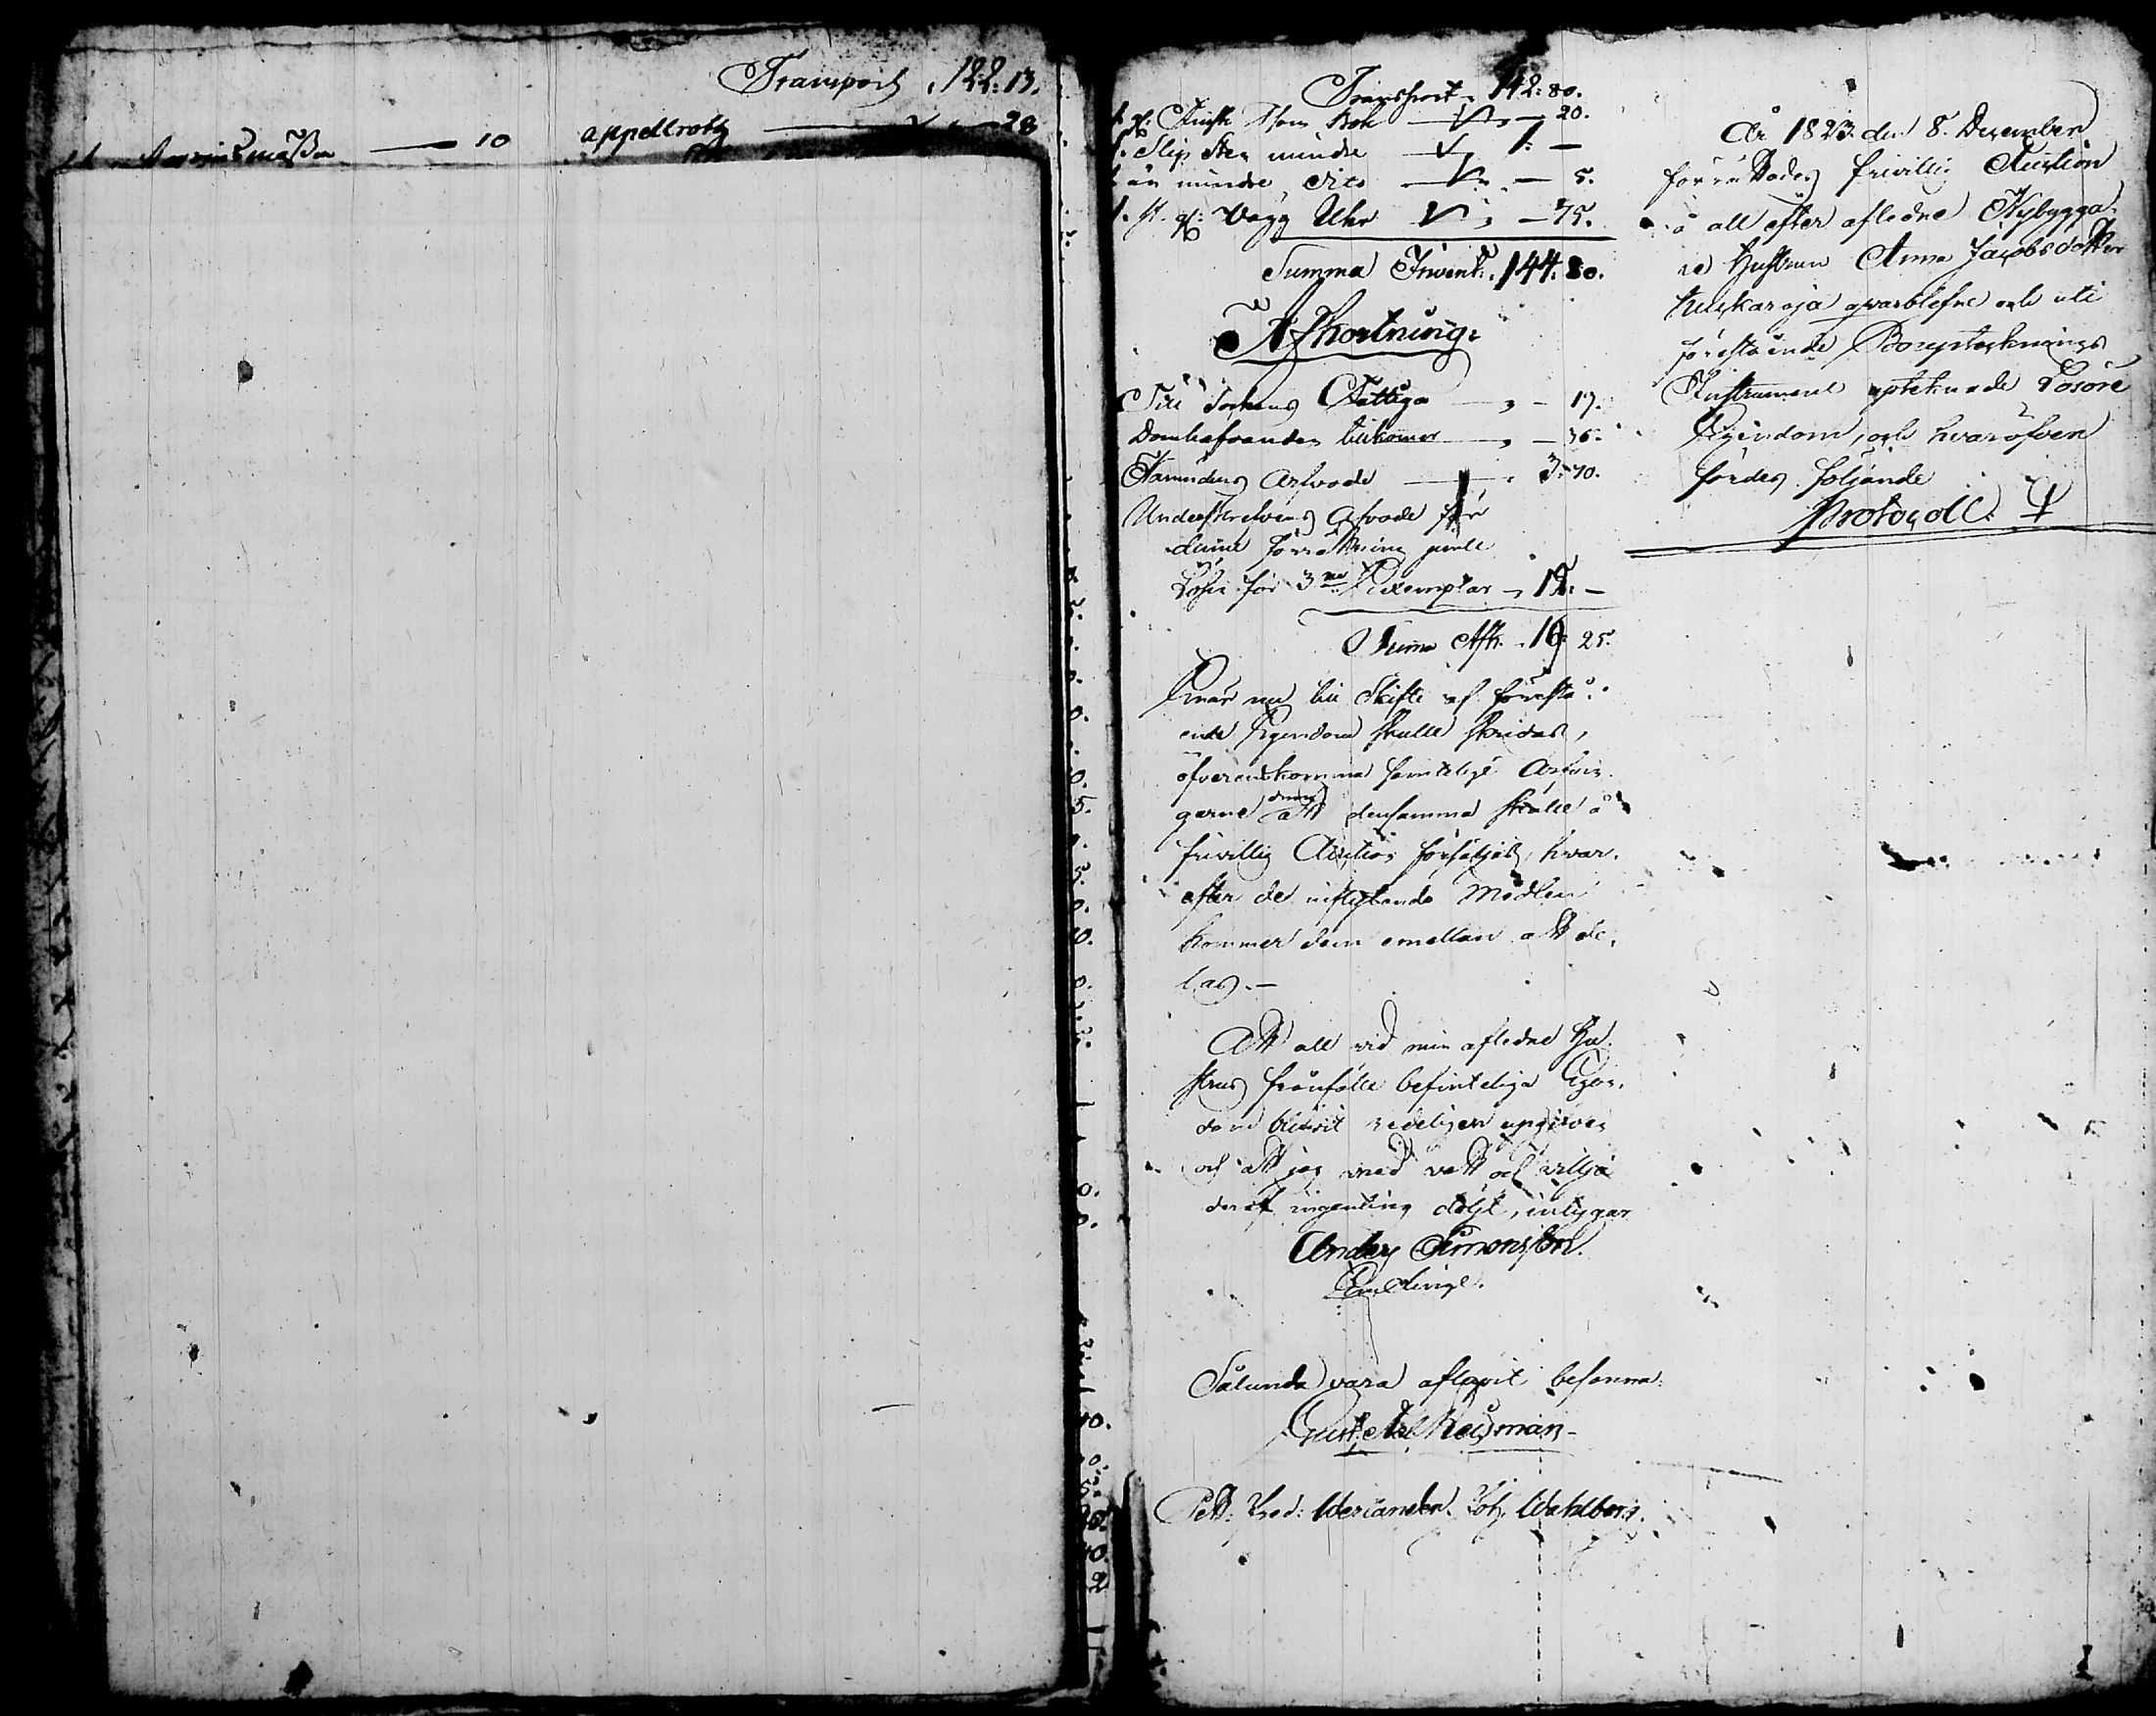 Transport 122: 13.
10 appellroth 28
Transport 142: 80.
20.
1. Slip Sten mindre 1: —
än mindre dito 5.
1. st. gl: Vägg Uhr — 75.
Summa Invent: 144: 80.
Afkortning.
Till Sockens Fattiga — 19.
Domhafvanden tillkommer — 36.
Nämndens Arfvode 3: 70.
Underskrefvens Arfvode för
denne förrättning jemte
Lösen för 3ne Exemplar 12: —
Summa Afk. 16 25.
Som nu till Skifte af förestå-
ende Egendom skulle skridas,
öfverenskommo samtelige Arfvin-
garne att densamma skulle å
frivillig Auction försäljas, hvar-
efter de influtande Medlen
kommer dem emellan att de-
las. —
Att all vid min aflidne Hu-
strus frånfälle befinteliga Egen-
dom blifvit redeligen upgifven
och att jag med vett och vilja
deraf ingenting döljt, intygar
Anders Simonsson.
Sålunda vara aflagit besanna:
Pett: Fred: Werlander. Joh. Wahlberg.
År 1823 den 8. December
förrättades frivillig Auction
å all efter aflidne Nybygga-
re Hustrun Anna Jacobsdotter
qvarblefne och uti
förestående Boupteknings
Instrument uptecknade Lösöre
Egendom, och hvaröfver
fördes följande
Protocoll.